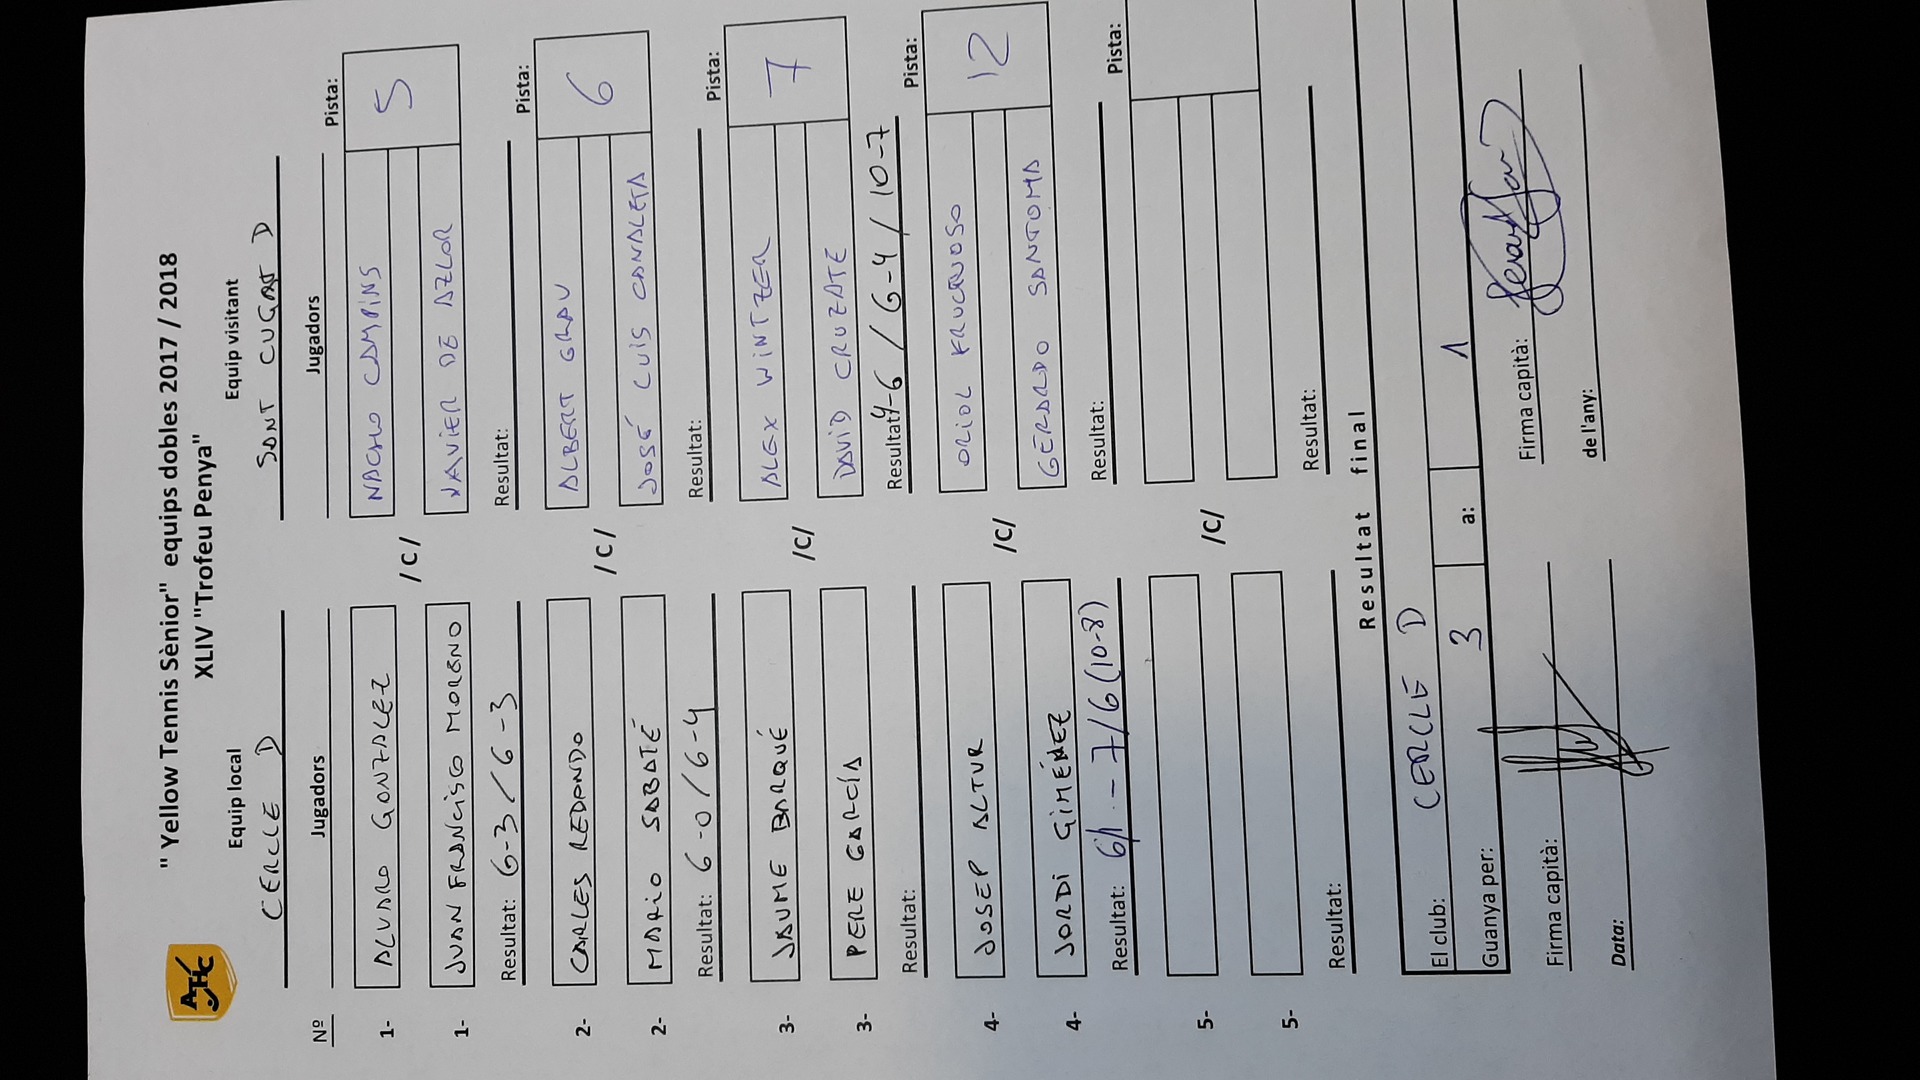 " Yellow Tennis Sènior" equips dobles 2017 / 2018
XLIV "Trofeu Penya"
Equip local Equip visitant
CERCLE D SANT CUGAT D
Nº Jugadors Jugadors Pista:
1- ALVARO GONZALEZ /C/ NACHO CAMPINS 5
1- JUAN FRANCISCO MORENO JAVIER DE AZLOR
Resultat: 6-3 / 6-3 Resultat: Pista:
2- CARLES REDONDO /C/ ALBERT GRAU 6
2- MARIO SABATÉ JOSÉ LUIS CANALETA
Resultat: 6-0 / 6-4 Resultat: Pista:
3- JAUME BARQUÉ /C/ ALEX WINTZER 7
3- PERE GARCÍA DAVID CRUZATE
Resultat: Resultat: 4-6 / 6-4 / 10-7 Pista:
4- JOSEP ALTUR /C/ ORIOL FRUCTUOSO 12
4- JORDI GIMÉNEZ GERARDO SANTOMA
Resultat: 6/1 - - 7/6 (10-8) Resultat: Pista:
5- /C/
5-
Resultat: Resultat:
Resultat final
El club: CERCLE D
Guanya per: 3 a: 1
Firma capità: Firma capità:
Data: de l'any: